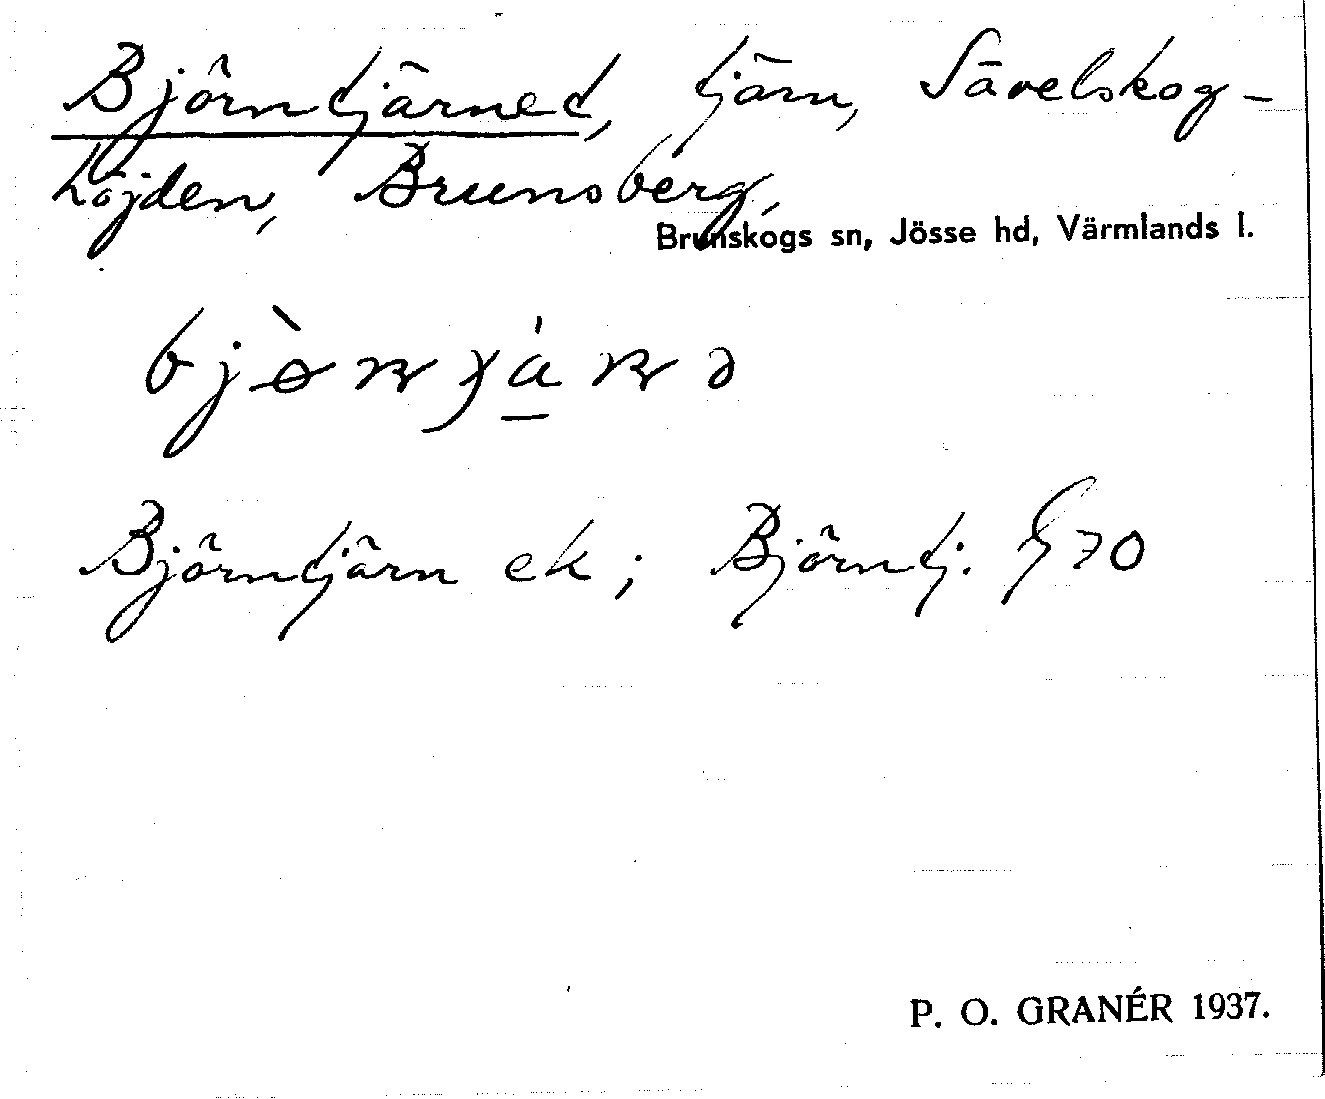 Björntjärnet, tjärn, Sävelskog-
höjden, Brunsberg,
Brunskogs sn, Jösse hd, Värmlands l.
Björntjärn ek; Björntj. G 70
P. O. GRANÉR 1937.